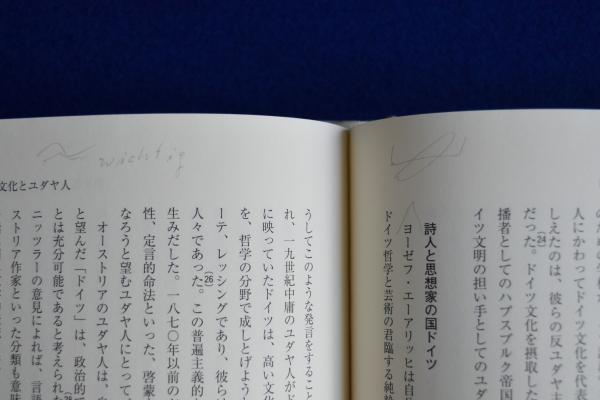 のための
人にかわってドイツ文化を代表
しえたのは、彼らの反ユダヤ主
だった。(24)ドイツ文化を摂取した
播者としてのハプスブルク帝国
イツ文明の担い手としてのユダ
詩人と思想家の国ドイツ
ヨーゼフ・エーアリッヒは自
ドイツ哲学と芸術の君臨する純粋
wichtig
文化とユダヤ人
うしてこのような発言をすること
れ、一九世紀中庸のユダヤ人がド
に映っていたドイツは、高い文化
を、哲学の分野で成しとげよう
ーテ、レッシングであり、彼ら
人々であった。(26)この普遍主義的
生みだした。一八七〇年以前の
性、定言的命法といった、啓蒙
なろうと望むユダヤ人にとって
オーストリアのユダヤ人は、
と望んだ「ドイツ」は、政治的
とは充分可能であると考えられた
ニッツラーの意見によれば、言語
ストリア作家といった分類も意味